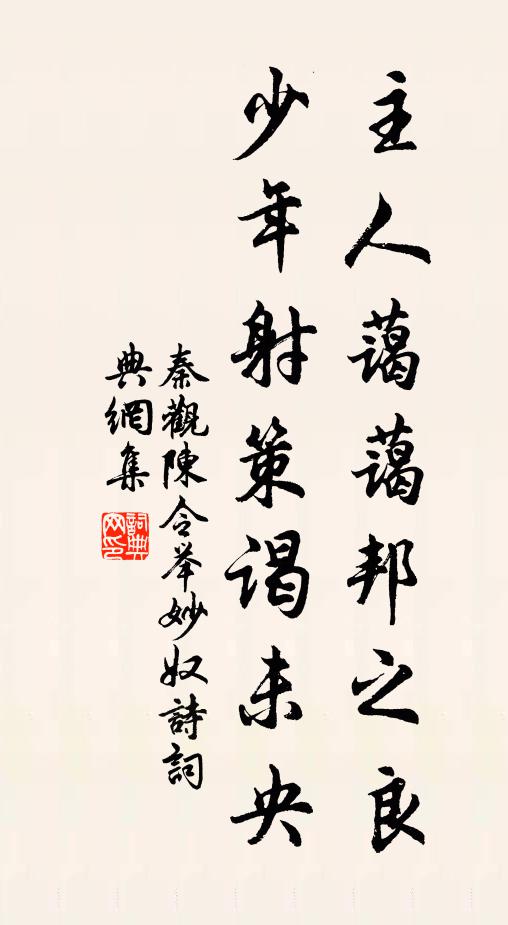 主人藹藹邦之良
少年射策谒未央
秦觀陳令举妙奴詩詞
典網集
詞典網印